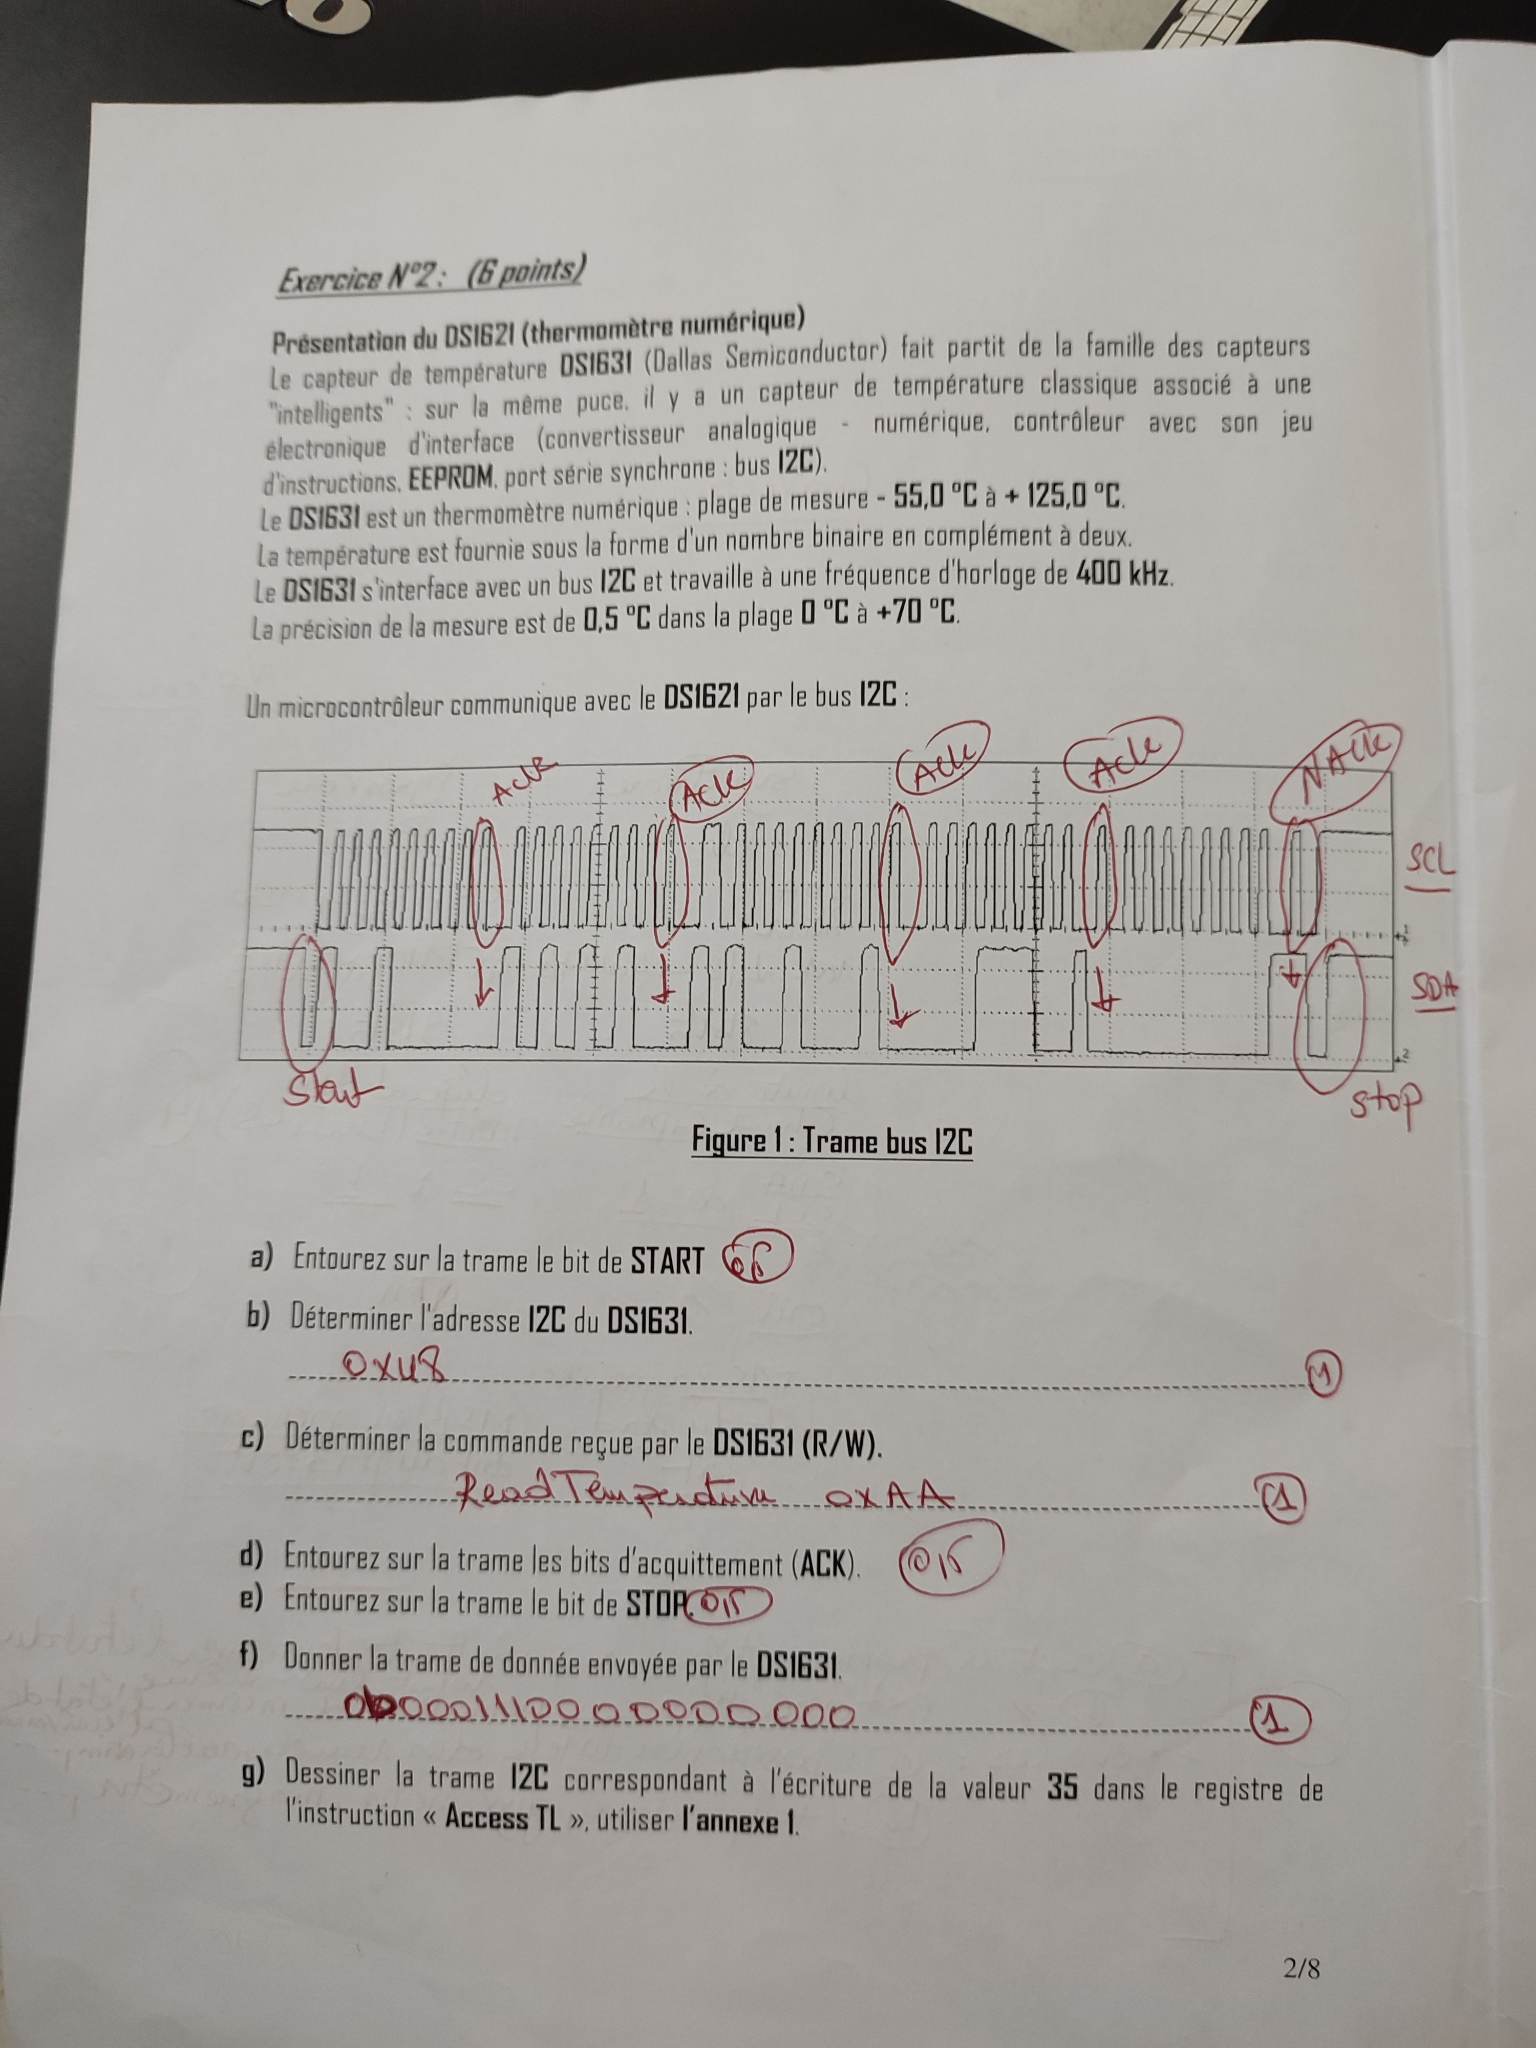 Exercice N°2 : (6 points)
Présentation du DS1621 (thermomètre numérique)
Le capteur de température DS1631 (Dallas Semiconductor) fait partit de la famille des capteurs
"intelligents" : sur la même puce, il y a un capteur de température classique associé à une
électronique d'interface (convertisseur analogique - numérique, contrôleur avec son jeu
d'instructions, EEPROM, port série synchrone : bus I2C).
Le DS1631 est un thermomètre numérique : plage de mesure - 55,0 °C à + 125,0 °C.
La température est fournie sous la forme d'un nombre binaire en complément à deux.
Le DS1631 s'interface avec un bus I2C et travaille à une fréquence d'horloge de 400 kHz.
La précision de la mesure est de 0,5 °C dans la plage 0 °C à +70 °C.
Un microcontrôleur communique avec le DS1621 par le bus I2C :
Ack Ack Ack Ack NAck
SCL
1
SDA
2
Start
stop
Figure 1 : Trame bus I2C
a) Entourez sur la trame le bit de START
b) Déterminer l'adresse I2C du DS1631.
0x48 1
c) Déterminer la commande reçue par le DS1631 (R/W).
Read Temperature 0xAA 1
d) Entourez sur la trame les bits d'acquittement (ACK). 0,5
e) Entourez sur la trame le bit de STOP. 0,5
f) Donner la trame de donnée envoyée par le DS1631.
1
g) Dessiner la trame I2C correspondant à l'écriture de la valeur 35 dans le registre de
l'instruction « Access TL », utiliser l'annexe 1.
2/8